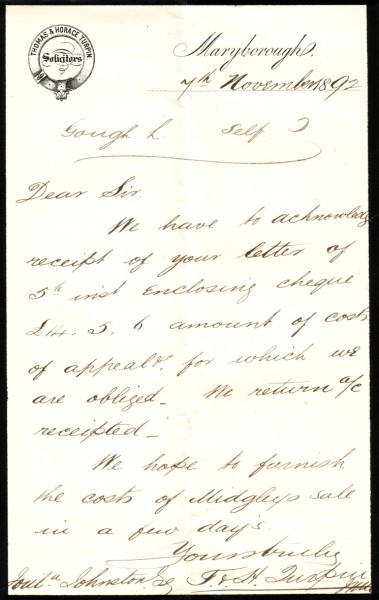 THOMAS & HORACE TURPIN
Solicitors
Maryborough.
7th November 1892
Gough L Self
Dear Sir.
We have to acknowledge
receipt of your letter of
5th inst enclosing cheque
£14. 5. 6 amount of costs
of appeal &c. for which we
are obliged_ We return a/c
receipted_
We hope to furnish
the costs of Midgleys sale
in a few days.
Yours truly
Johnston Esq T & H. Turpin